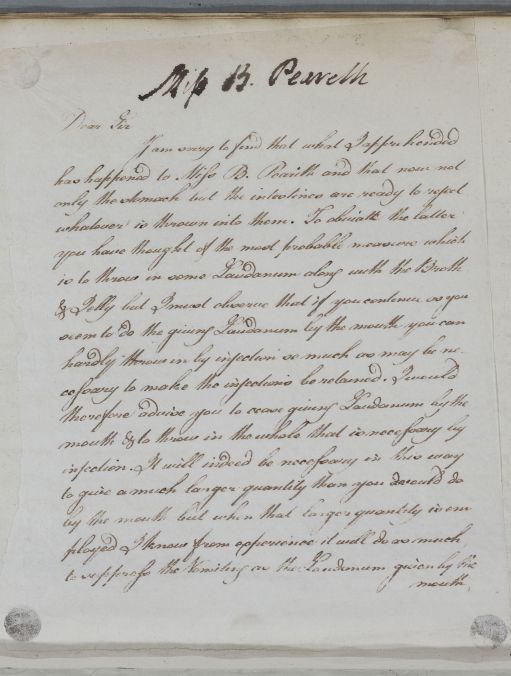 Miss B. Pewreth
Dear Sir
I am sorry to find that what I apprehended
has happened to Miss B. Pewrith and that now not
only the stomach but the intestines are ready to repel
whatever is thrown into them. To obviate the latter
you have thought of the most probable measure which
is to throw in some Laudanum along with the Broth
& Jelly but I must observe that if you continue as you
seem to do the giving Laudanum by the mouth you can
hardly throw in by injection so much as may be ne-
cessary to make the injections be retained. I would
therefore advise you to cease giving Laudanum by the
mouth & to throw in the whole that is necessary by
injection. It will indeed be necessary in this way
to give a much larger quantity than you would do
by the mouth but when that larger quantity is em
ployed I know from experience it will do as much
to suppress the Vomiting as the Laudanum given by the
mouth.